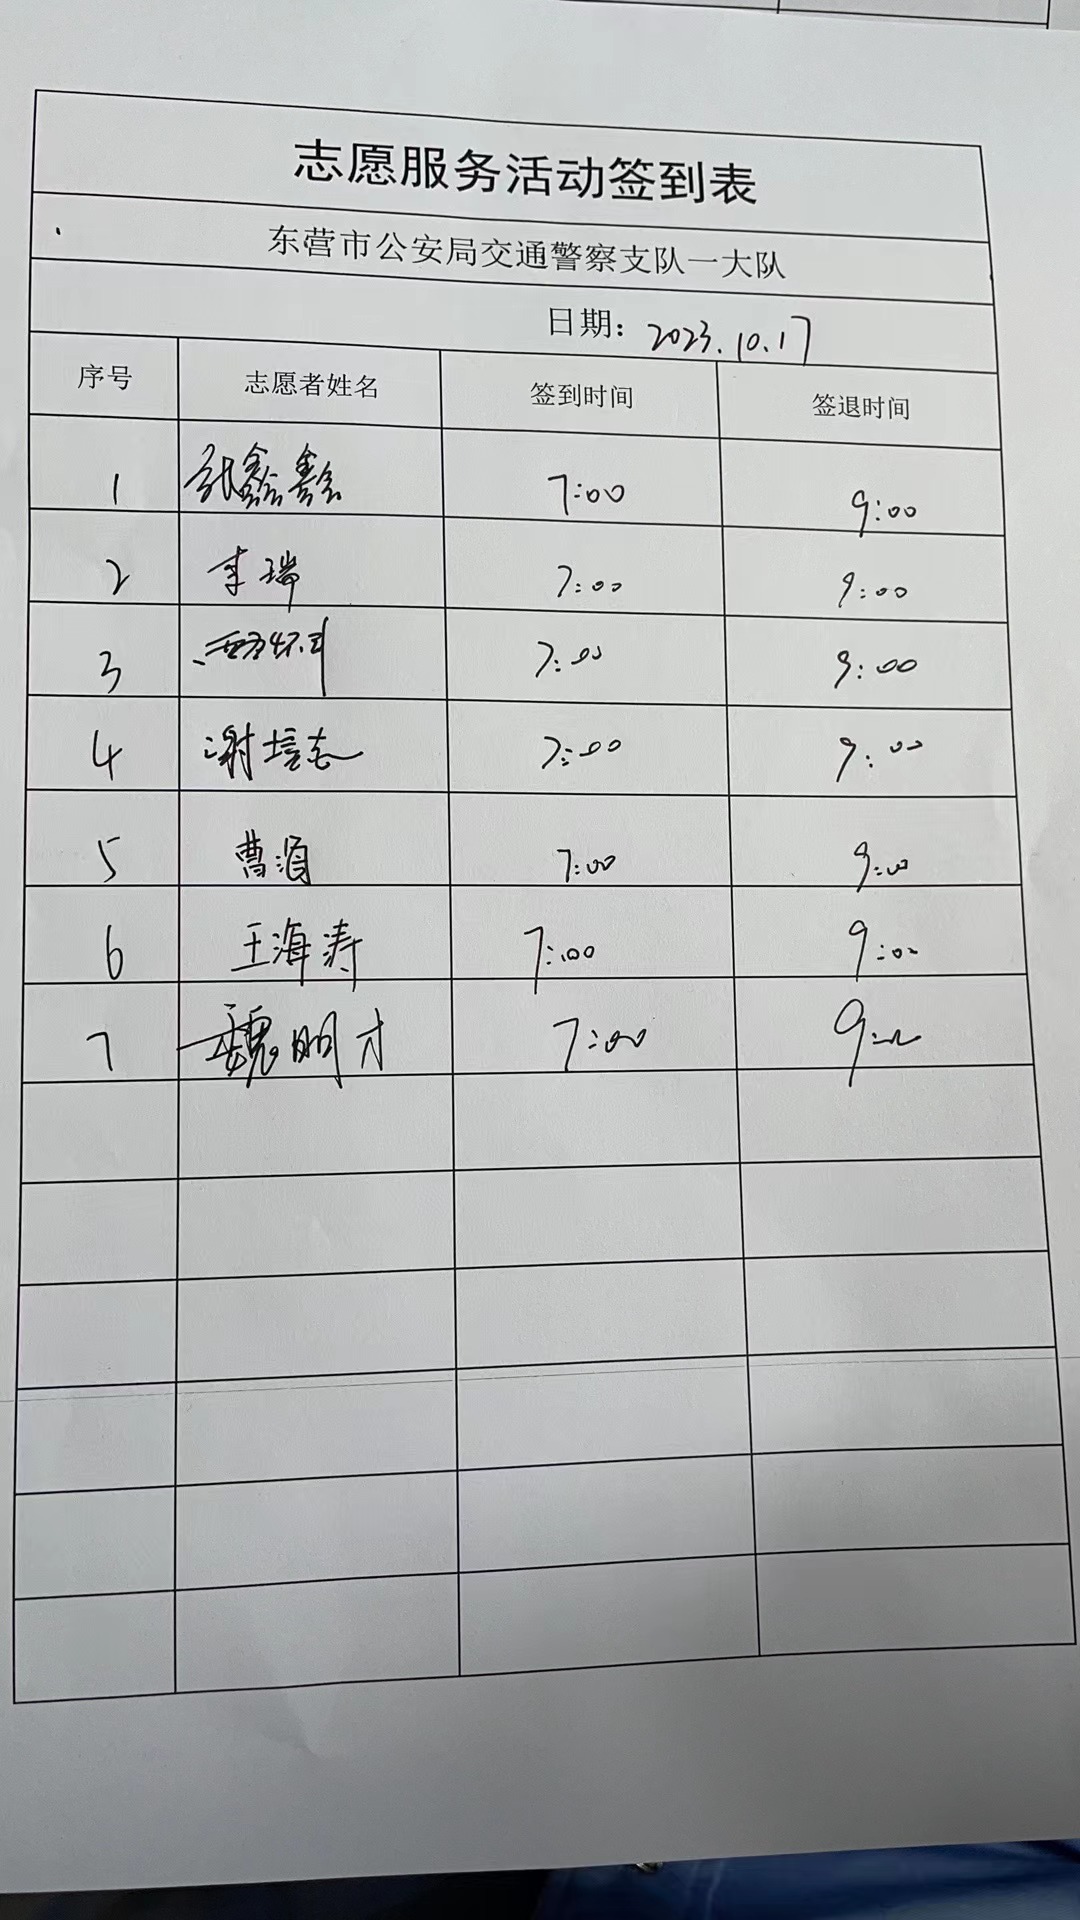 志愿服务活动签到表
东营市公安局交通警察支队一大队
日期：2023.10.17
序号 志愿者姓名 签到时间 签退时间
1 张鑫鑫 7:00 9:00
2 李瑞 7:00 9:00
3 7:00 9:00
4 谢培志 7:00 9:00
5 曹 7:00 9:00
6 王海涛 7:00 9:00
7 魏明才 7:00 9:00